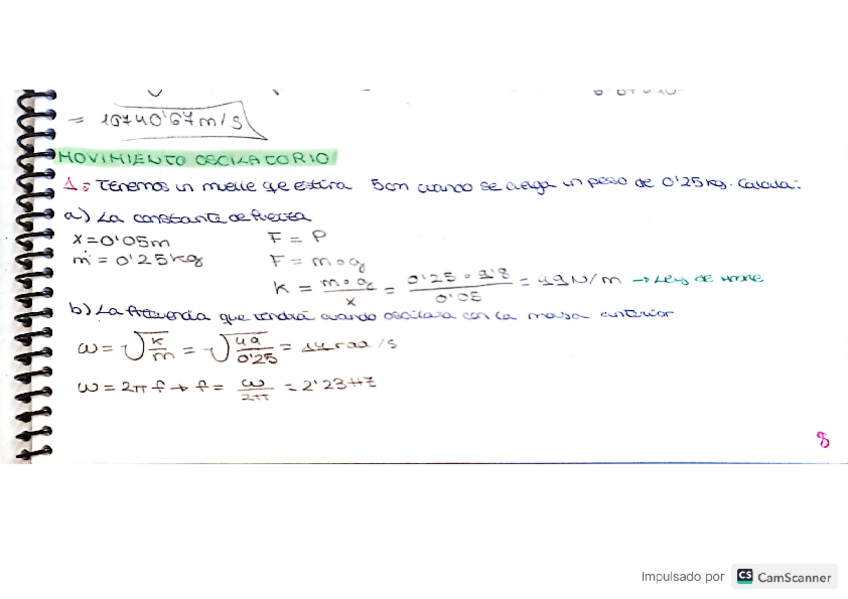 = 16740'67m/s
MOVIMIENTO OSCILATORIO
1: Tenemos un muelle que estira 5cm cuando se cuelga un peso de 0'25kg. Calcula:
a) La constante de fuerza
x=0'05m F = P
m = 0'25kg F = m·g
K = m·g / x = 0'25·9'8 / 0'05 = 49N/m → Ley de Hooke
b) La frecuencia que tendrá cuando oscilara con la masa anterior
ω = √k/m = √49/0'25 = 14 rad/s
ω = 2π f → f = ω/2π = 2'23Hz
8
Impulsado por CS CamScanner